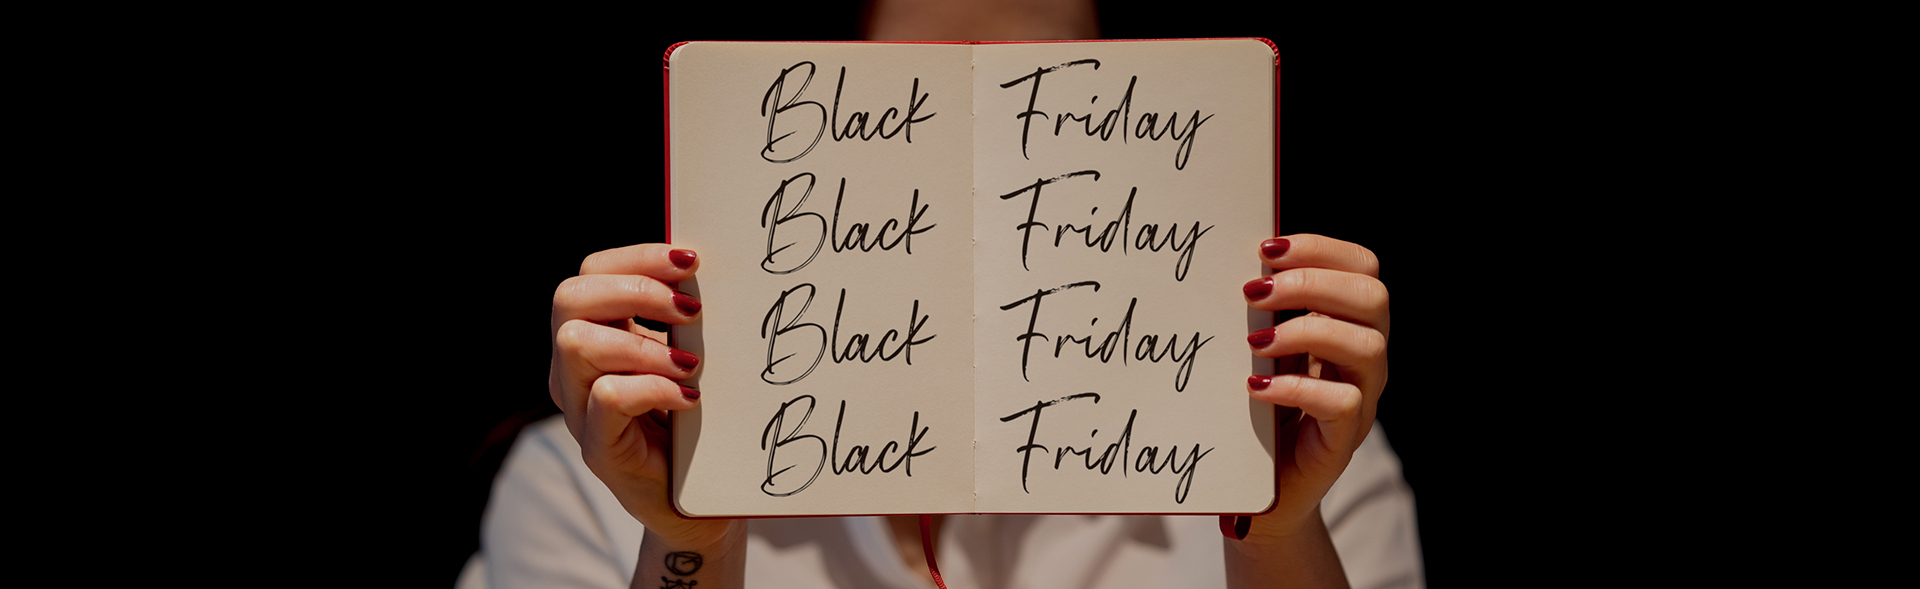 Black Friday
Black Friday
Black Friday
Black Friday